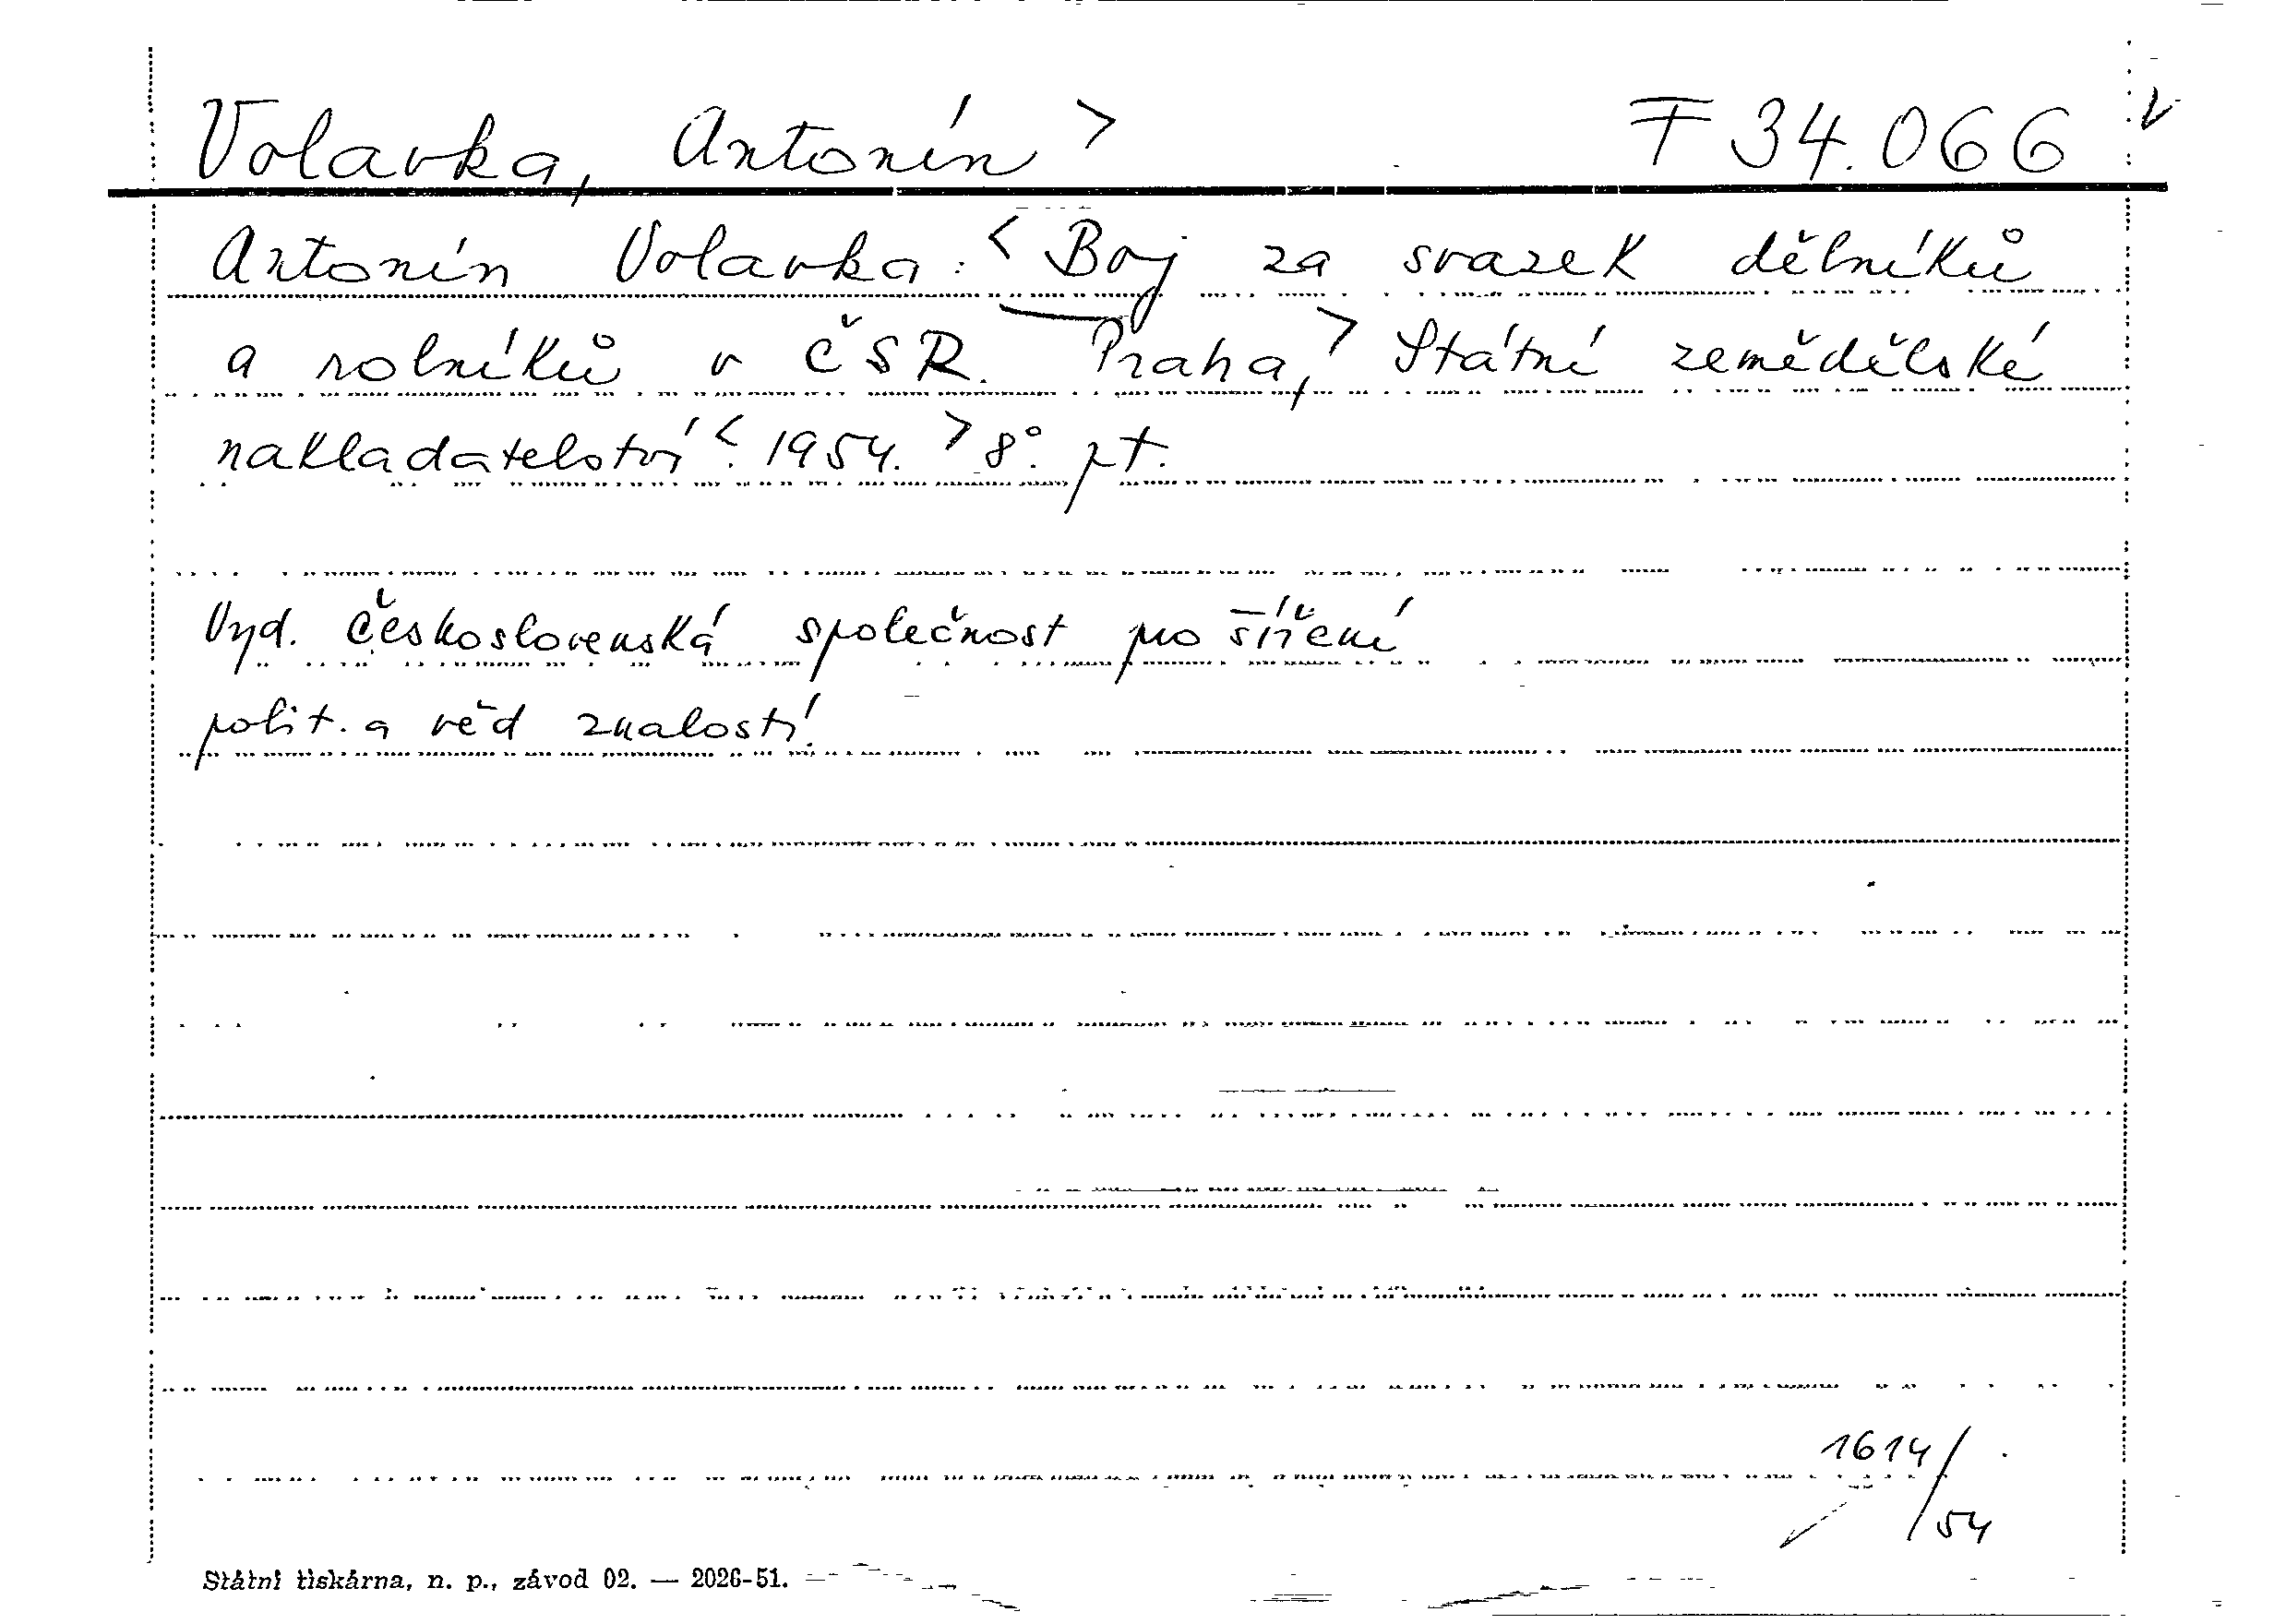 Volavka, Antonín > F 34.066 v
Antonín Volavka: < Boj za svazek dělníků
a rolníků v ČSR. Praha, > Státní zemědělské
nakladatelství <. 1954. > 8°. pt.
Vyd. Československá společnost pro šíření
polit. a věd znalostí.
1614/
54
Státní tiskárna, n. p., závod 02. — 2026-51.